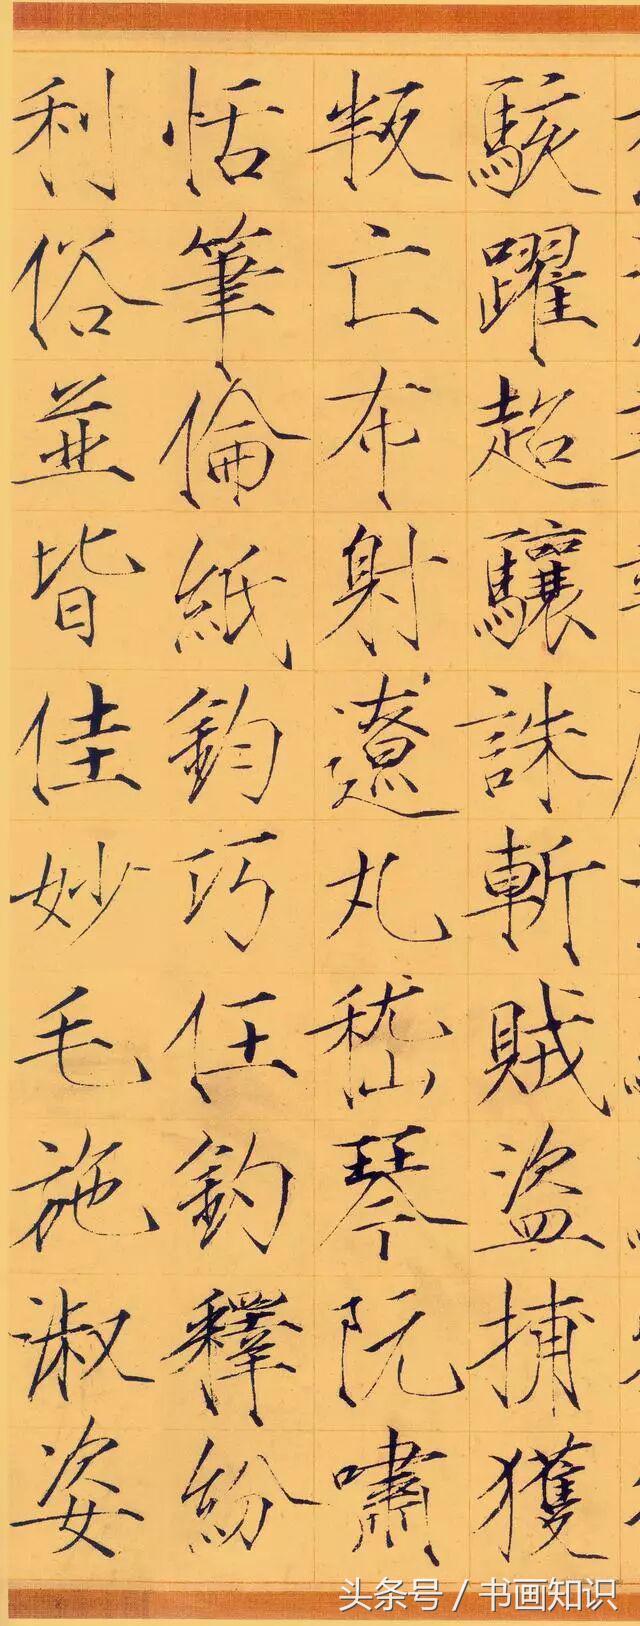 駭躍超驤誅斬賊盜捕獲
叛亡布射遼丸嵇琴阮嘯
恬筆倫紙鈞巧任釣釋紛
利俗並皆佳妙毛施淑姿
头条号 / 书画知识